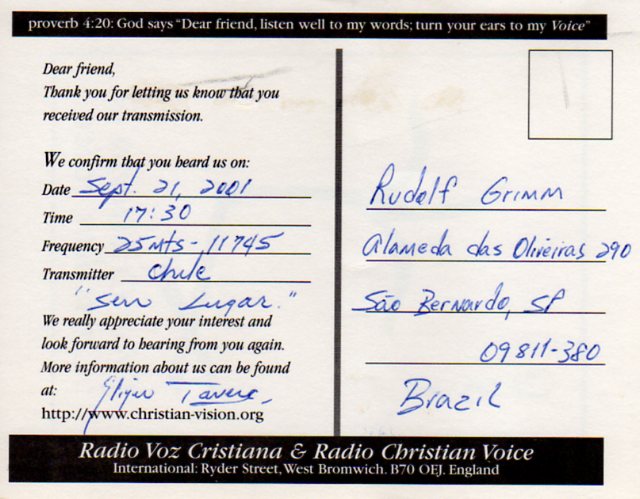 proverb 4:20: God says "Dear friend, listen well to my words; turn your ears to my Voice"
Dear friend,
Thank you for letting us know that you
received our transmission.
We confirm that you heard us on:
Date Sept. 21, 2001
Time 17:30
Frequency 25mts - 11745
Transmitter Chile
Lugar."
We really appreciate your interest and
look forward to hearing from you again.
More information about us can be found
at:
http://www.christian-vision.org
Rudolf Grimm
Alameda das Oliveiras 290
São Bernardo, SP
09811-380
Brazil
Radio Voz Cristiana & Radio Christian Voice
International: Ryder Street, West Bromwich. B70 OEJ. England